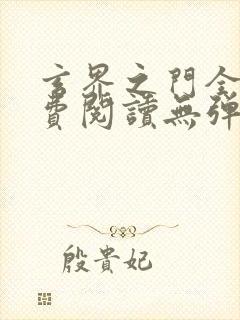 玄界之門全
費閱讀無彈
殷貴妃